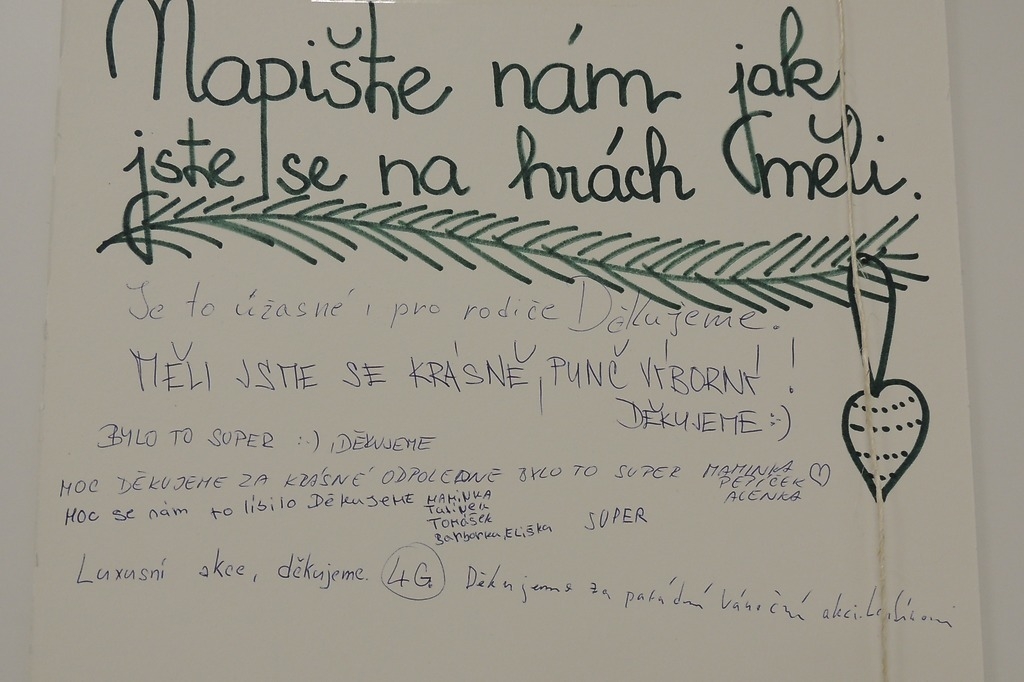 Napište nám jak
jste se na hrách měli.
Je to úžasné i pro rodiče Děkujeme.
MĚLI JSME SE KRÁSNĚ, PUNČ VÝBORNÝ!
DĚKUJEME :-)
BYLO TO SUPER :-), DĚKUJEME
MOC DĚKUJEME ZA KRÁSNÉ ODPOLEDNE BYLO TO SUPER MAMINKA
PETÍČEK
ALENKA
MOC SE nám to líbilo DěkuJEME MAMINKA
Tomášek
Barborka, Eliška
SUPER
Luxusní akce, děkujeme. 4G. Děkujeme za parádní vánoční akci.